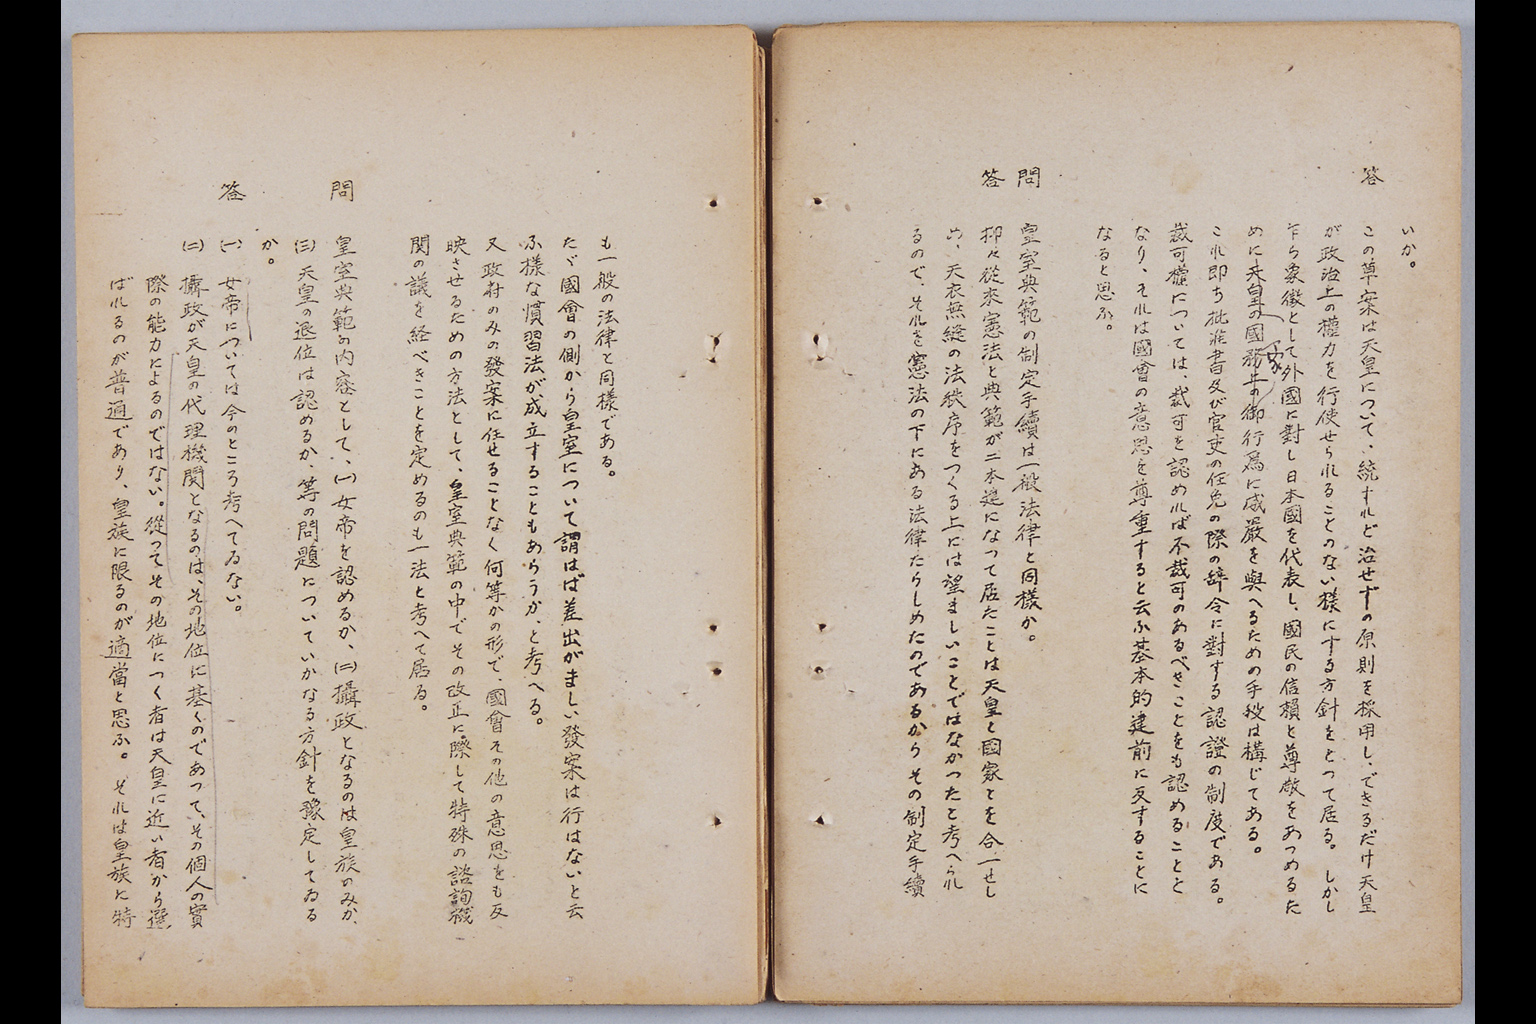 いか。
答　この草案は天皇について、統すれど治せずの原則を採用し、できるだけ天皇
が政治上の權力を行使せられることのない樣にする方針をとつて居る。しかし
乍ら象徴として外國に對し日本國を代表し、國民の信賴と尊敬をあつめるた
めに天皇の國務上の御行爲に威嚴を與へるための手段は構じてある。
これ即ち批准書及び官吏の任免の際の辞令に對する認證の制度である。
裁可權については、裁可を認めれば不裁可のあるべきことをも認めることと
なり、それは國會の意思を尊重すると云ふ基本的建前に反することに
なると思ふ。
問　皇室典範の制定手續は一般法律と同樣か。
答　抑々從來憲法と典範が二本建になつて居たことは天皇と國家とを合一せし
め、天衣無縫の法秩序をつくる上には望ましいことではなかつたと考へられ
るので、それを憲法の下にある法律たらしめたのであるからその制定手續
も一般の法律と同樣である。
たゞ國會の側から皇室について謂はば差出がましい發案は行はないと云
ふ樣な慣習法が成立することもあらうか、と考へる。
又政府のみの發案に任せることなく何等かの形で、國會その他の意思をも反
映させるための方法として、皇室典範の中でその改正に際して特殊の諮詢機
関の議を経べきことを定めるのも一法と考へて居る。
問　皇室典範の内容として、(一)女帝を認めるか、(二)攝政となるのは皇族のみか、
(三)天皇の退位は認めるか、等の問題についていかなる方針を豫定してゐる
か。
答　(一)　女帝については今のところ考へてゐない。
(二)　攝政が天皇の代理機関となるのは、その地位に基くのであつて、その個人の實
際の能力によるのではない。從つてその地位につく者は天皇に近い者から選
ばれるのが普通であり、皇族に限るのが適當と思ふ。それは皇族に特